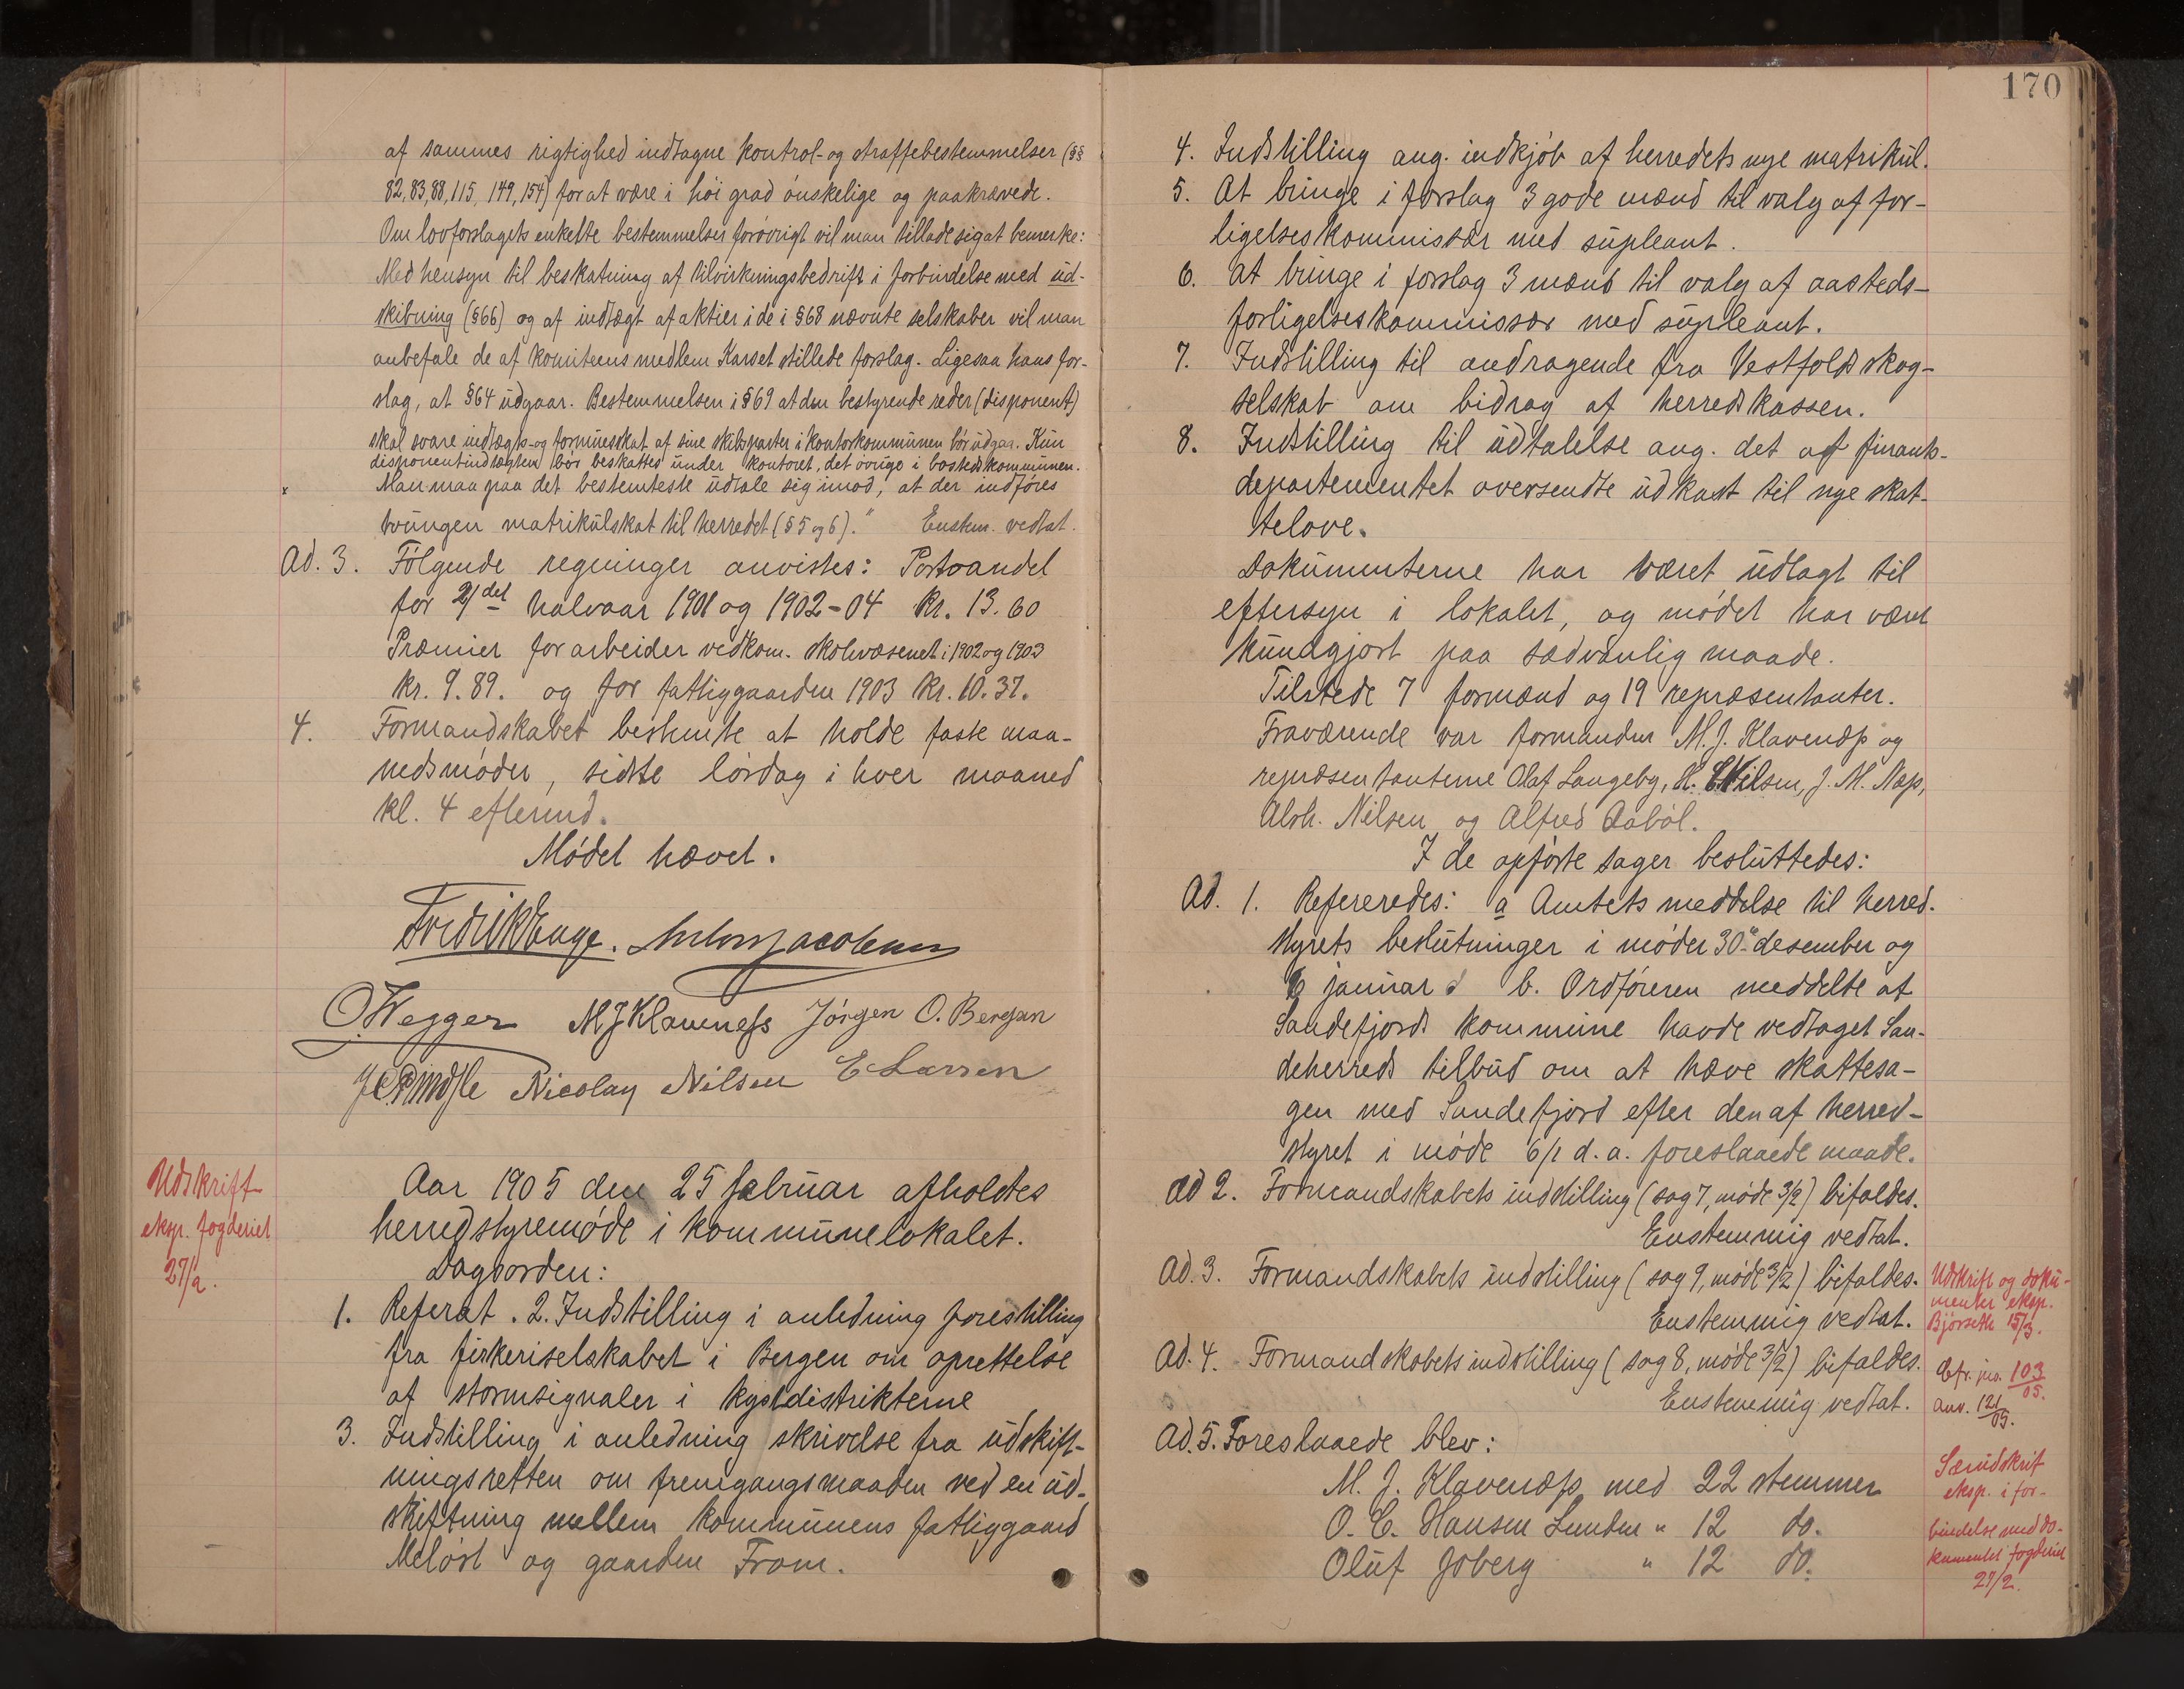 af sammes rigtighed indtagne kontrol- og straffebestemmelser (§§
82, 83, 88, 115, 149, 154) for at være i høi grad ønskelige og paakrævede.
Om lovforslagets enkelte bestemmelser forøvrigt vil man tillade sig at bemerke:
Med hensyn til beskatning af tilvirkningsbedrift i forbindelse med ud-
skibning (§66) og af indtægt af aktier i de i §68 nævnte selskaber vil man
anbefale de af komiteens medlem Karset stillede forslag. Ligesaa hans for-
slag, at §64 udgaar. Bestemmelsen i §69 at den bestyrende reder (disponent)
skal svare indtægts- og formuesskat af sine skibsparter i kontorkommunen bør udgaa. Kun
disponentindtægten bør beskattes under kontoret, det øvrige i bostedskommunen.
x Man maa paa det bestemteste udtale sig imod, at der indføres
tvungen matrikulskat til herredet (§5 og 6)." Enstem. vedtat.
Ad. 3. Følgende regninger anvistes: Portoandel
for 2/det halvaar 1901 og 1902-04 kr. 13.60
Præmier for arbeider vedkom. skolevæsenet i 1902 og 1903
kr. 9.89. og for fattiggaarden 1903 kr. 10.37.
4. Formandskabet bestemte at holde faste maa-
nedsmøder, sidste lørdag i hver maaned
kl. 4 eftermd.
Mødet hævet.
Fredrik Enge. Anton Jacobsen
O. Wegger M J Klaveness Jørgen O. Bergan
Nicolay Nilsen E Larsen
Udskrift
eksp. fogderiet
27/2.
Aar 1905 den 25 februar afholdtes
herredstyremøde i kommunelokalet.
Dagsorden:
1. Referat. 2. Indstilling i anledning forestilling
fra fiskeriselskabet i Bergen om oprettelse
af stormsignaler i kystdistrikterne
3. Indstilling i anledning skrivelse fra udskift-
ningsretten om fremgangsmaaden ved en ud-
skiftning mellem kommunens fattiggaard
Meløst og gaarden Fram.
170
4. Indstilling ang. indkjøb af herredets nye matrikul.
5. At bringe i forslag 3 gode mænd til valg af for-
ligelseskommissær med supleant.
6. At bringe i forslag 3 mænd til valg af aasteds-
forligelseskommissær med supleant.
7. Indstilling til andragende fra Vestfolds skog-
selskab om bidrag af herredskassen.
8. Indstilling til udtalelse ang. det af finants-
departementet oversendte udkast til nye skat-
telove.
Dokumenterne har været udlagt til
eftersyn i lokalet, og mødet har været
kundgjort paa sædvanlig maade.
Tilstede 7 formænd og 19 repræsentanter.
Fraværende var formanden M. J. Klavenæss og
repræsentanterne Olaf Langeby, H. E. Nilsen, J. M. Næss,
Abrh. Nilsen og Alfred Aabøl.
I de opførte sager besluttedes:
Ad. 1. Refereredes: a Amtets meddelse til herred-
styrets beslutninger i møder 30. desember og
6 januar b. Ordføreren meddelte at
Sandefjords kommune havde vedtaget San-
deherreds tilbud om at hæve skattesa-
gen med Sandefjord efter den af herred-
styret i møde 6/1 d. a. foreslaaede maade.
Ad 2. Formandskabets indstilling (sag 7, møde 3/2) bifaldes.
Enstemmig vedtat.
Ad. 3. Formandskabets indstilling (sag 9, møde 3/2) bifaldes.
Enstemmig vedtat.
Udskrift og doku-
menter eksp.
Bjørseth 15/3.
Ad. 4. Formandskabets indstilling (sag 8, møde 3/2) bifaldes.
Enstemmig vedtat.
Cfr. jno. 103/05.
anv. 121/05.
Ad. 5. Foreslaaede blev:
M. J. Klavenæss med 22 stemmer
O. C. Hansen Lunden " 12 do.
Oluf Joberg " 12 do.
Særudskrift
eksp. i for-
bindelse med do-
kumentet fogderiet
27/2.